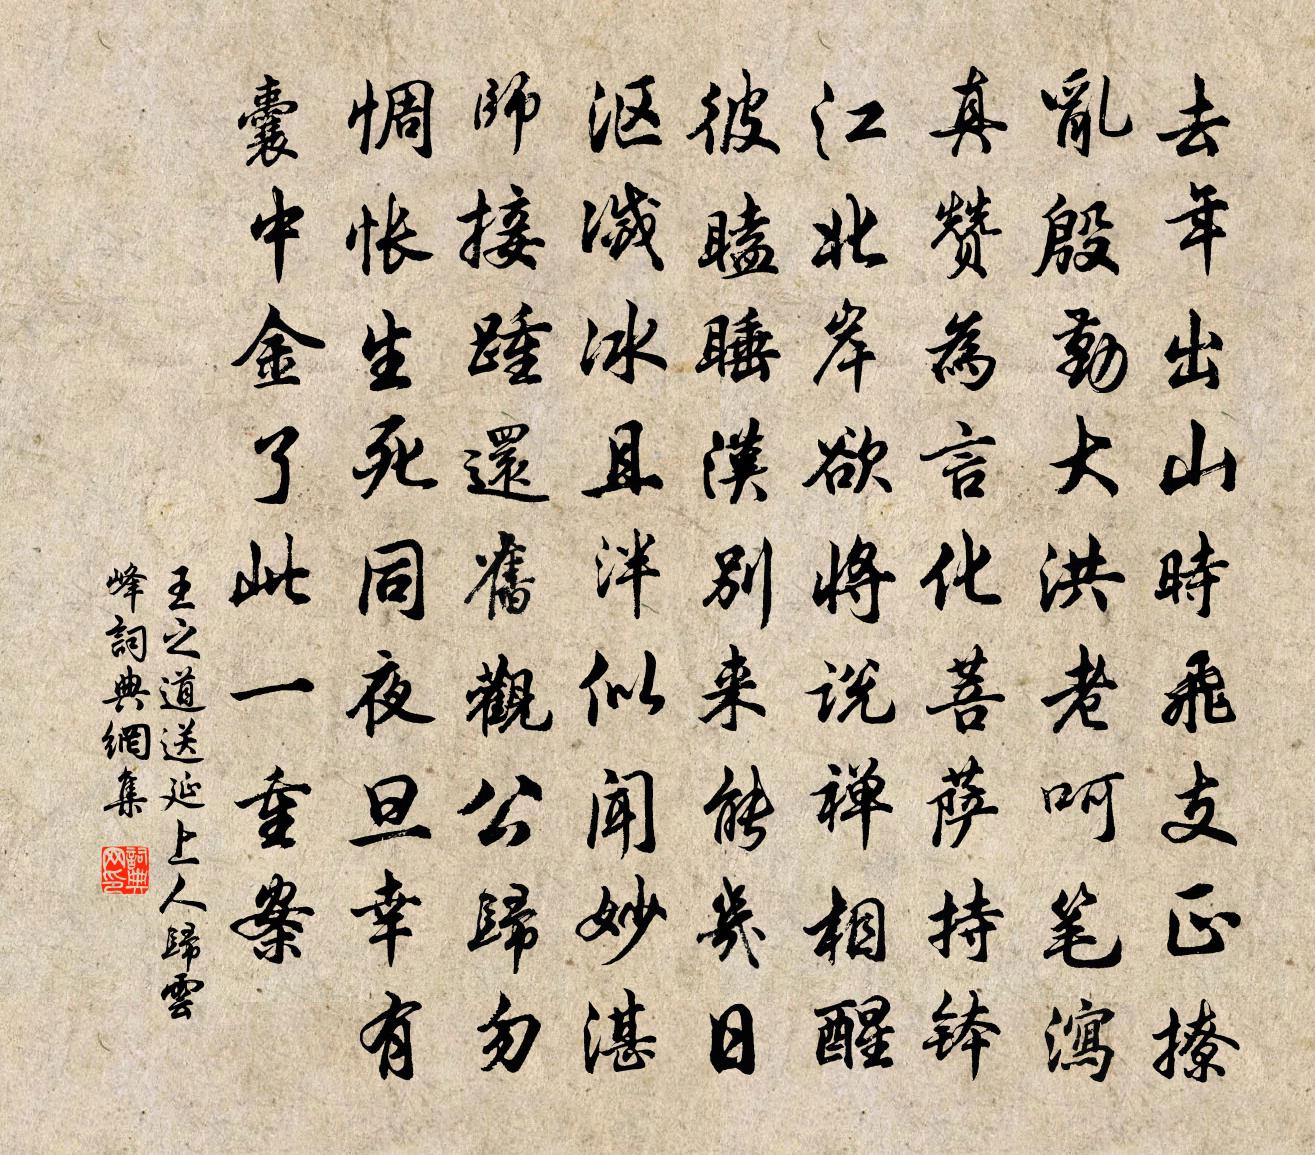 去年出山時飛支正撩
亂殷勤大洪老呵笔瀉
真赞為言化菩萨持钵
江北岸欲将说禅相醒
彼瞌睡漢别来能幾日
沤滅冰且泮似闻妙湛
師接踵還舊觀公歸勿
惆怅生死同夜旦幸有
囊中金了此一重案
王之道送延上人歸雲
峰詞典網集
詞典网印